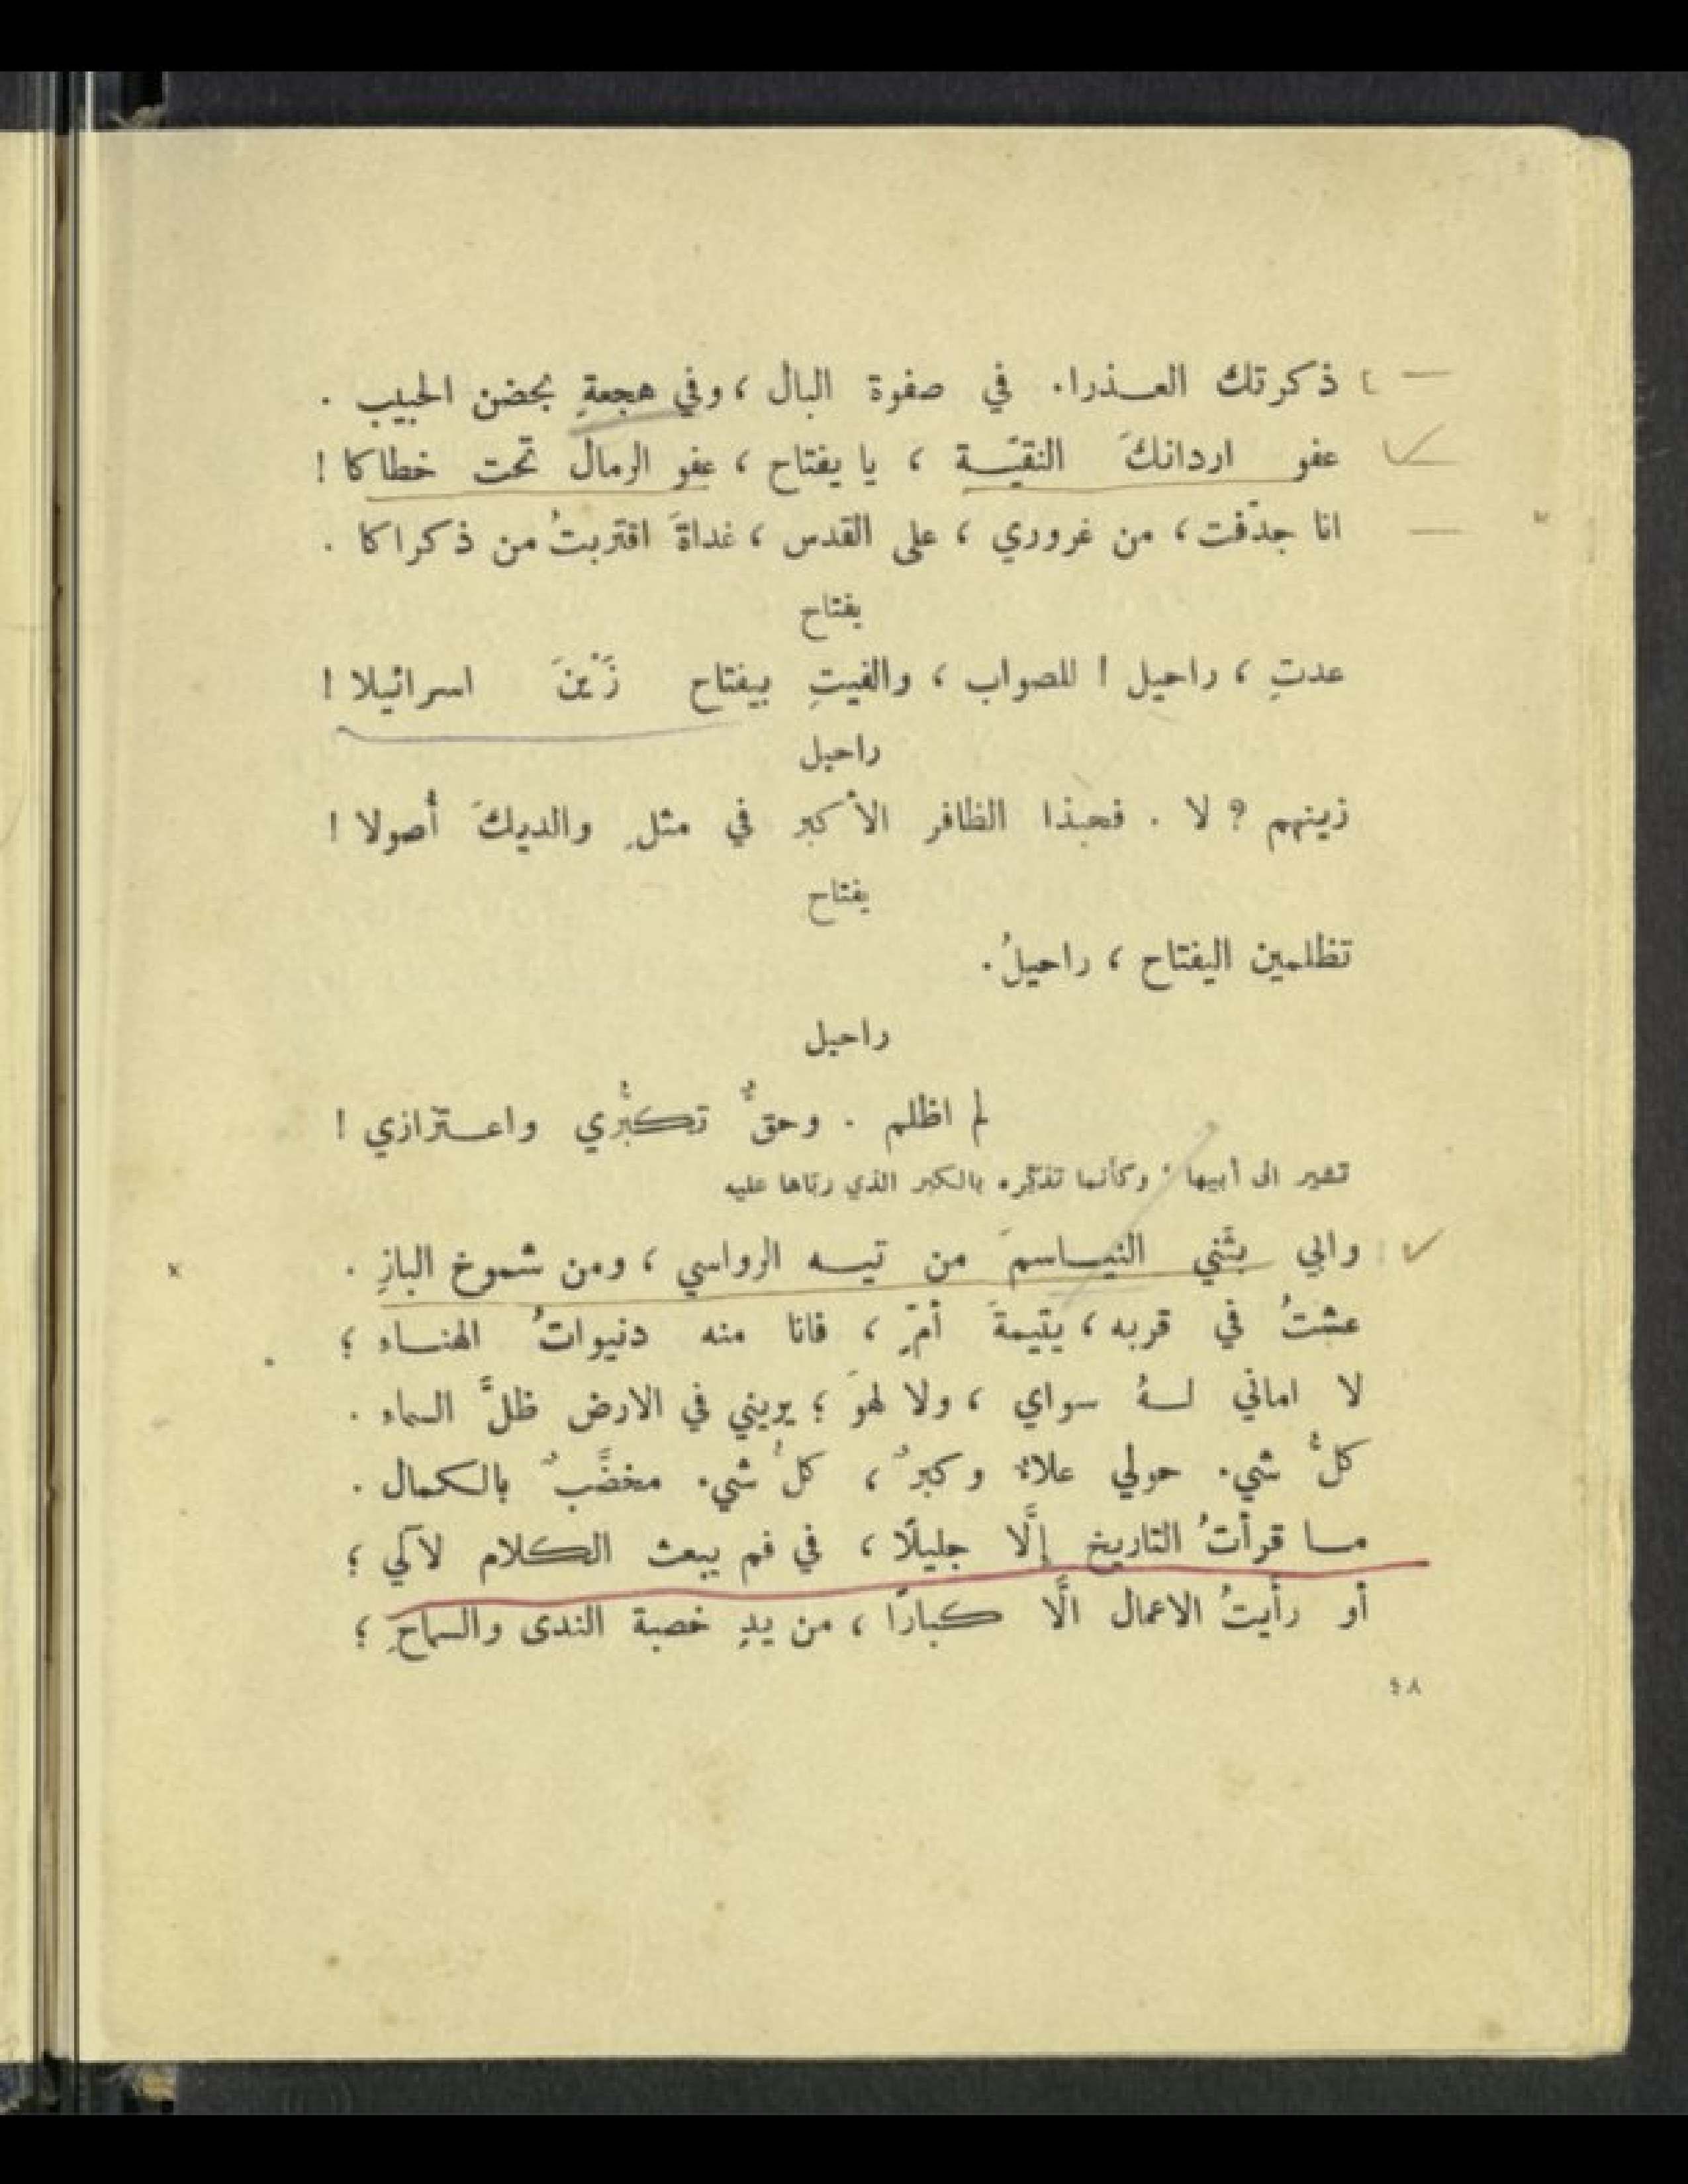 ذكرتك العـذراء في صفوة البال ، وفي هجعةٍ بحضن الحبيب .
عفو اردانكَ النقيّـة ، يا يفتاح ، عفو الرمال تحت خطاكا !
انا جدّفت ، من غروري ، على القدس ، غداةَ اقتربتُ من ذكراكا .
يفتاح
عدتِ ، راحيل ! للصواب ، والفيتِ بيفتاح زَيْنَ اسرائيلا !
راحيل
زينهم ? لا . فحبذا الظافر الأكبر في مثلِ والديكَ أصولا !
يفتاح
تظلمين اليفتاح ، راحيلُ .
راحيل
لم اظلم . وحقٌّ تكبُّري واعـتزازي !
تشير الى أبيها ؛ وكأنما تذكّره بالكبر الذي ربّاها عليه
وابي بثّني النيـاسمَ من تيـه الرواسي ، ومن شموخ البازِ .
عشتُ في قربه ، يتيمةَ أمٍّ ، فانا منه دنيواتُ الهنـاء ؛
لا اماني لـهُ سواي ، ولا لهوَ ؛ يريني في الارض ظلَّ السماء .
كلُّ شيء حولي علاءٌ وكبرٌ ، كلُّ شيء مخضَّبٌ بالكمال .
مـا قرأتُ التاريخ إلَّا جليلًا ، في فم يبعث الكلام لآلي ؛
أو رأيتُ الاعمال الَّا كبارًا ، من يدٍ خصبة الندى والسماحِ ؛
٤٨